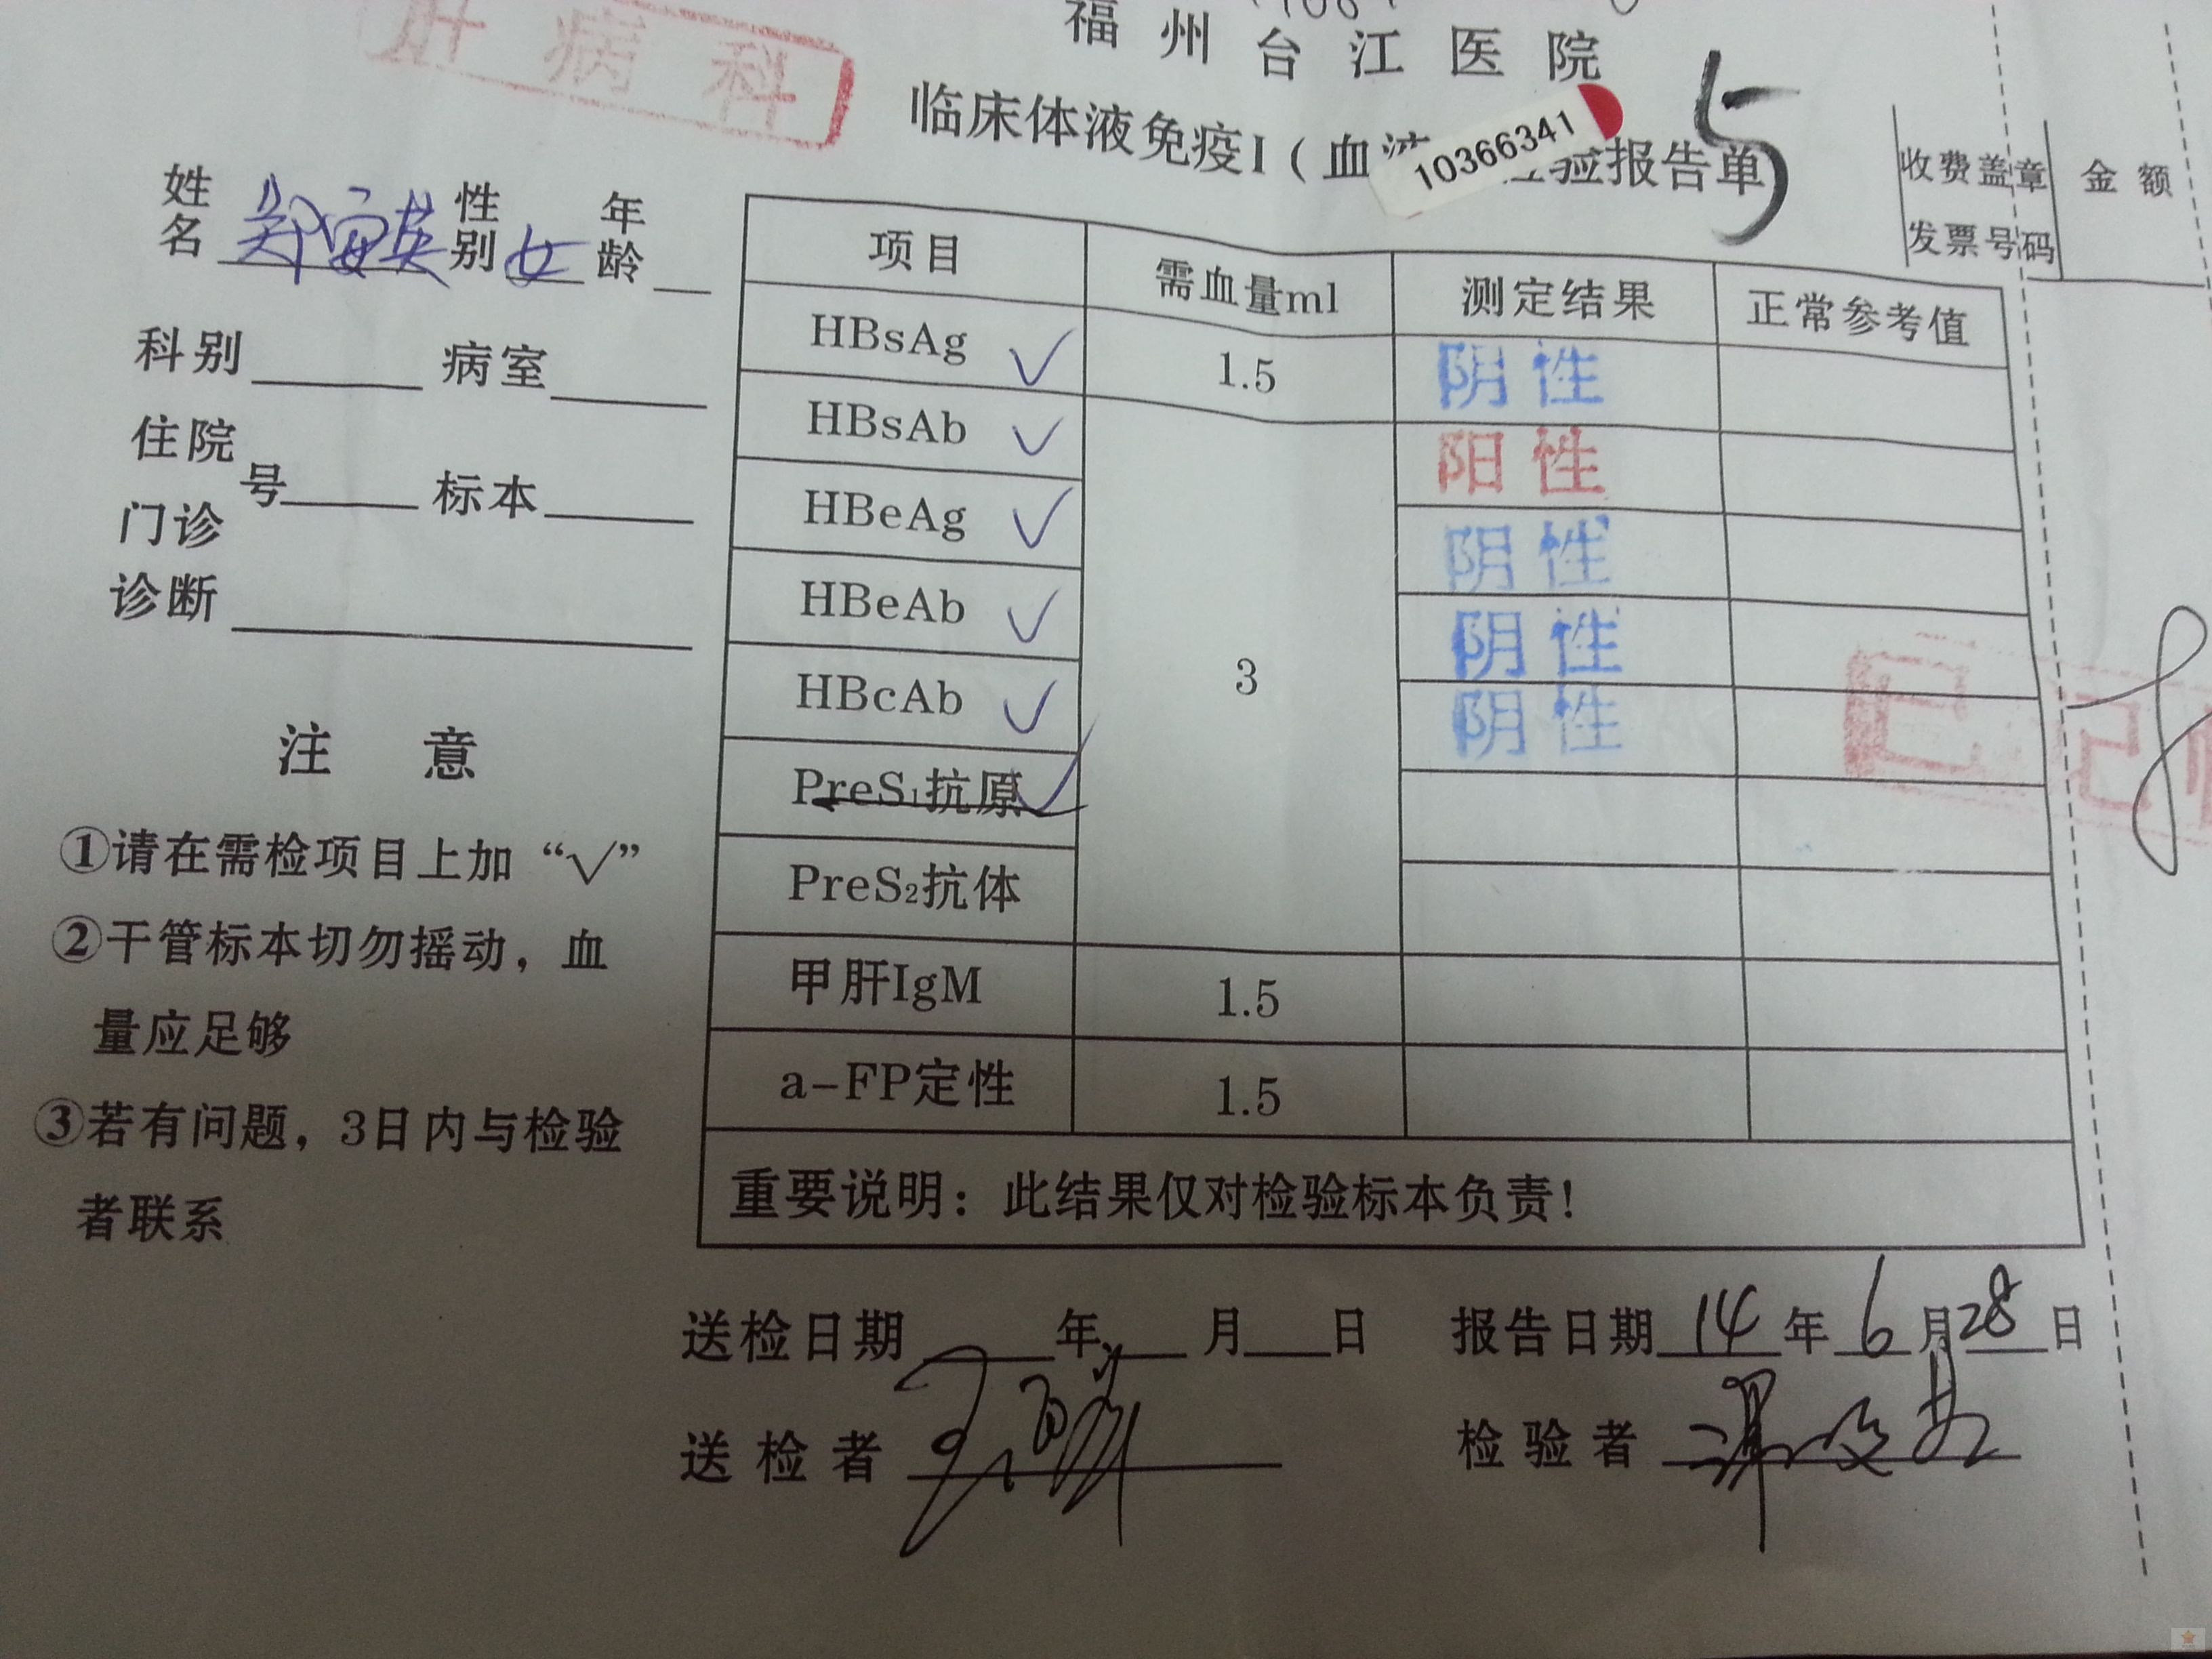 肝病科
福州台江医院
临床体液免疫I(血液 验报告单
10366341
5
收费盖章 金额
发票号码
姓名 性别 女 年龄
科别 病室
住院
号 标本
门诊
诊断
注意
①请在需检项目上加“√”
②干管标本切勿摇动,血
量应足够
③若有问题,3日内与检验
者联系
项目 需血量ml 测定结果 正常参考值
HBsAg √ 1.5 阴性
HBsAb √ 3 阳性
HBeAg √ 阴性
HBeAb √ 阴性
HBcAb √ 阴性
PreS₁抗原 √
PreS₂抗体
甲肝IgM 1.5
a-FP定性 1.5
重要说明:此结果仅对检验标本负责!
送检日期 年 月 日 报告日期 14 年 6 月 28 日
送检者 检验者